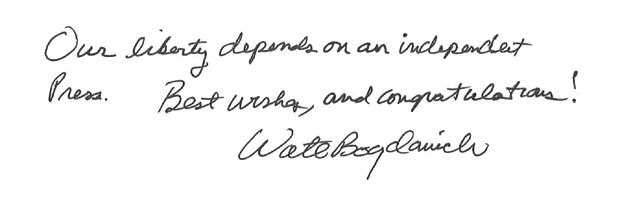 Our liberty depends on an independent
Press. Best wishes, and congratulations!
Walt Bogdanich